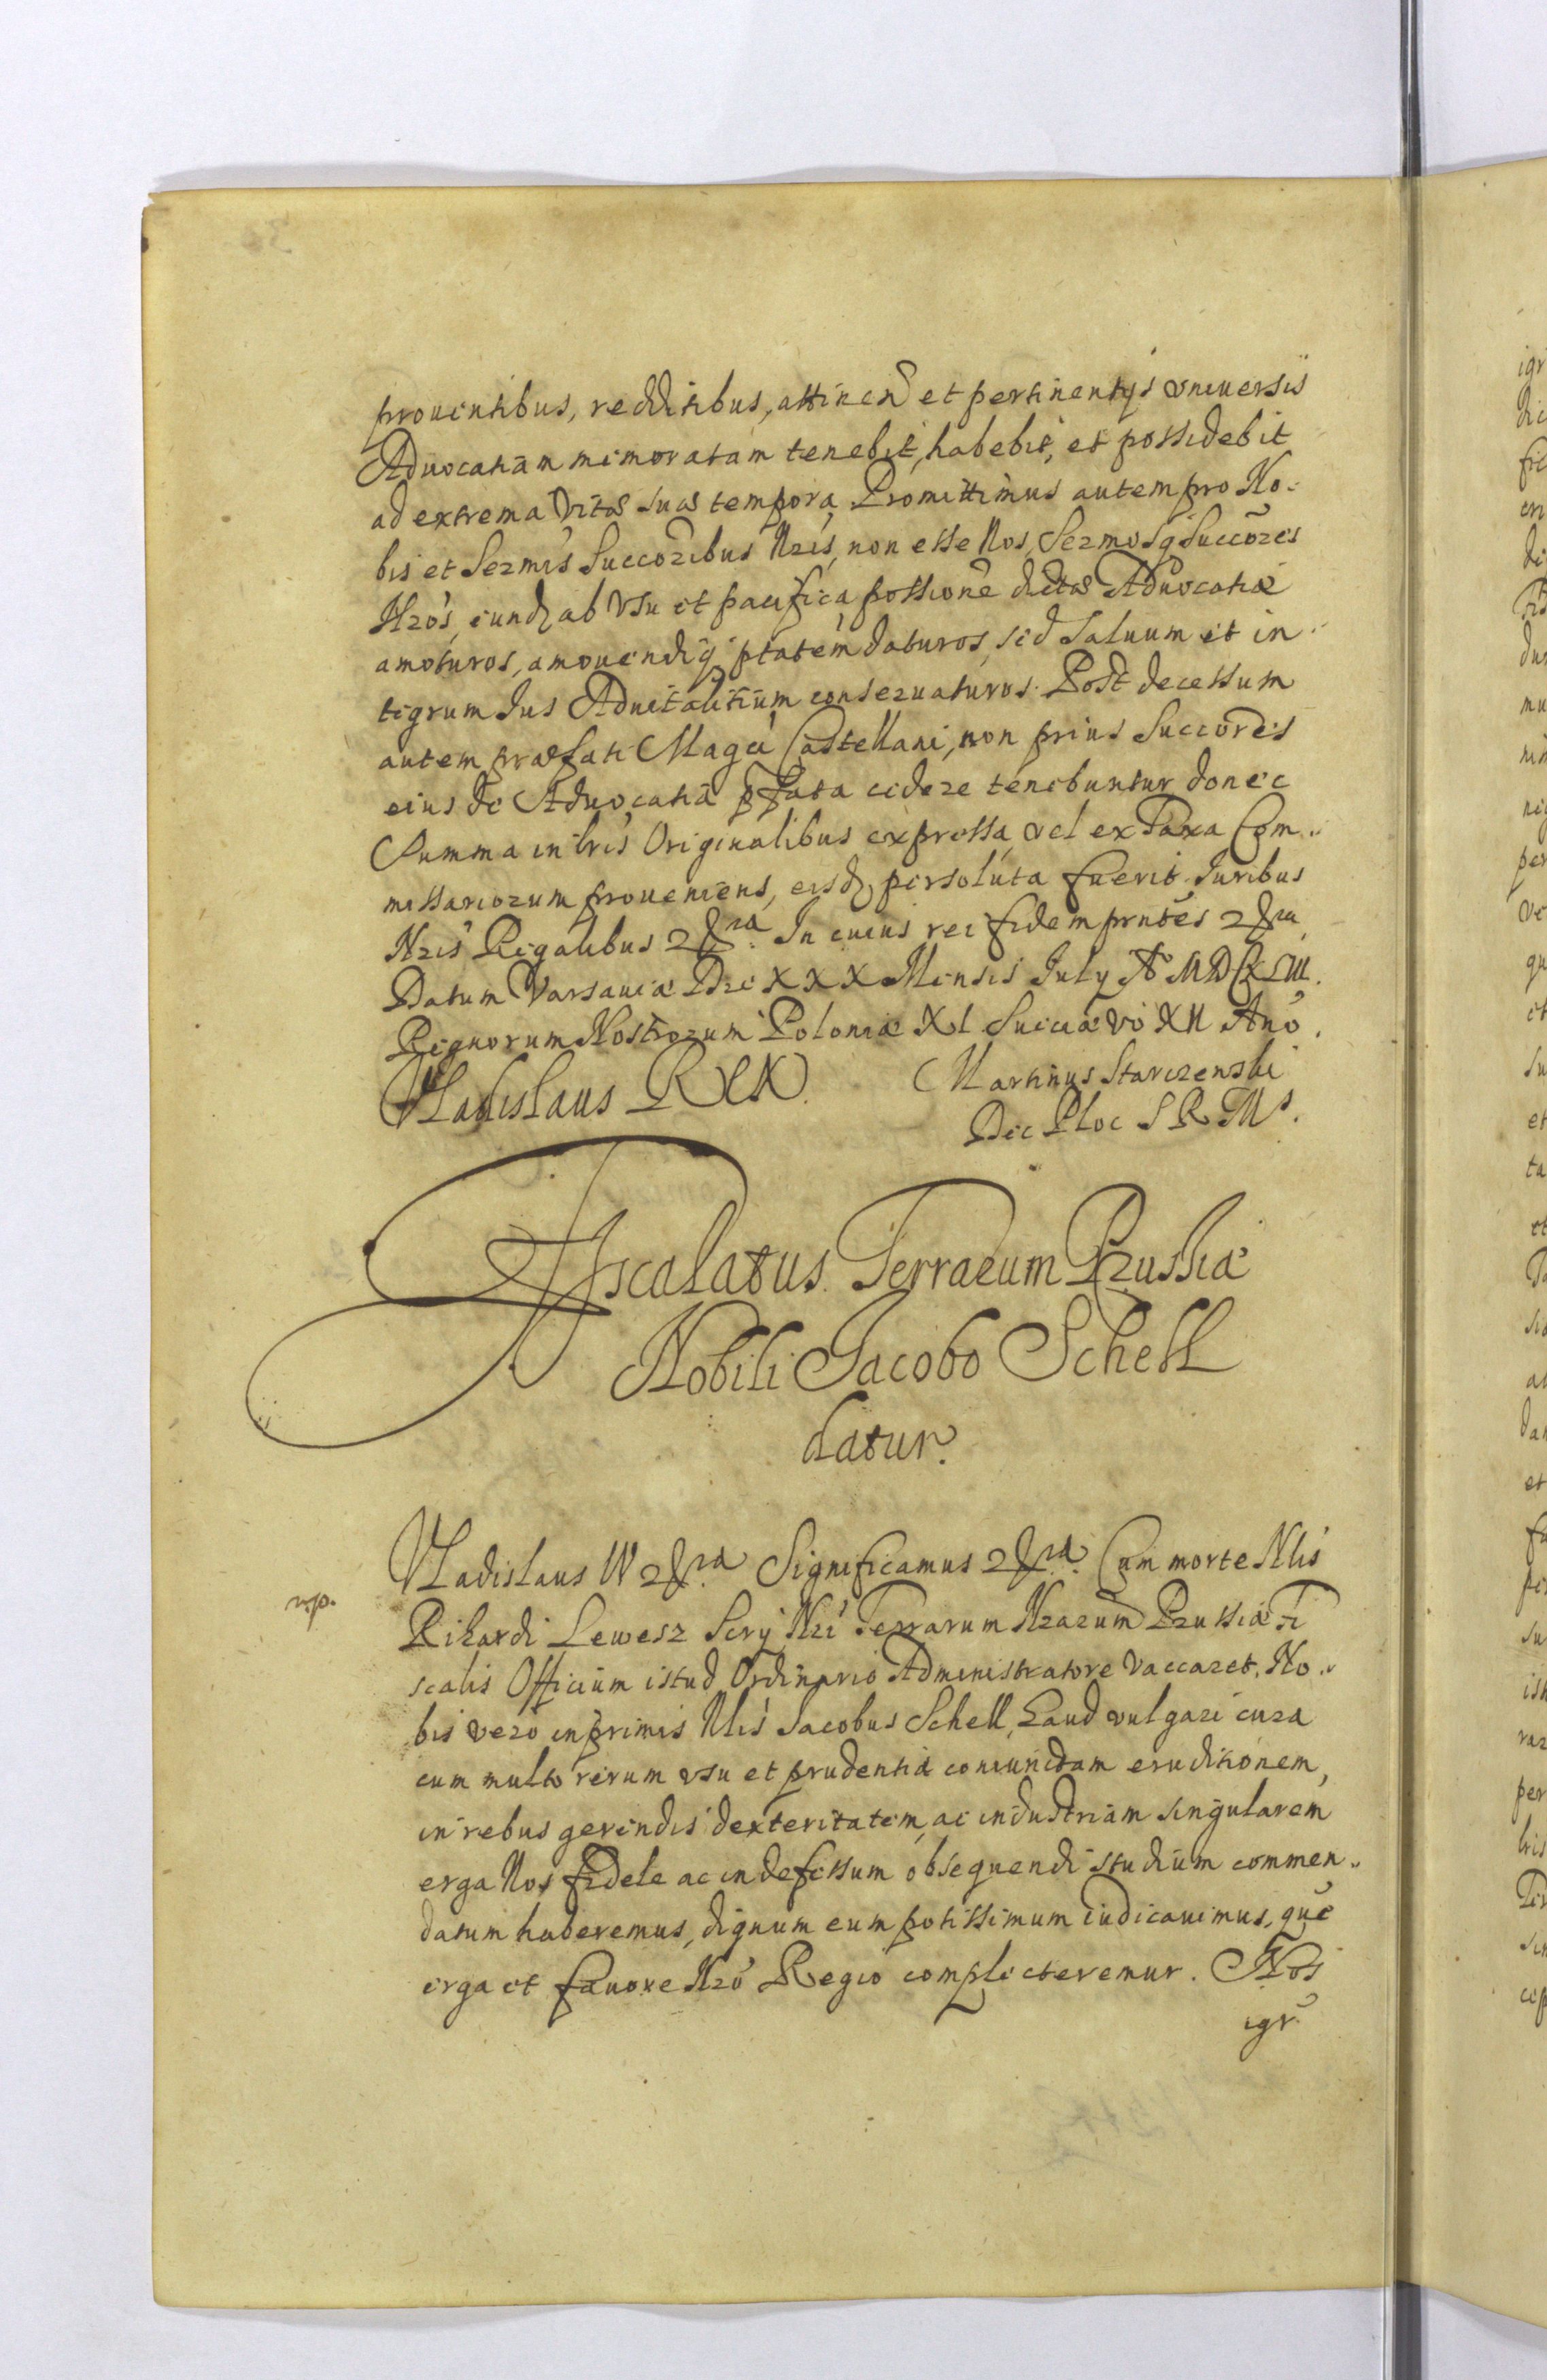 provintibus, redditibus, attinen et pertinentijs vniuersis
Aduocatiam memoratam tenebit, habebit, et possidebit
ad extrema vitæ suæ tempora, Promittimus autem pro No-
bis et Sermis Succoribus Nris, non esse Nos, Sermosq Succores
Nros, eundq ab vsu et pacifica possione dictæ Aduocatiæ
amoturos, amouendiq ptatem daturos, sed saluum et in-
tegrum Jus Aduitalitium conseruaturos. Post decessum
autem præfati Magci Castellani, non prius Succores
eius de Aduocatia pfata cedere tenebuntur donec
Summa in lris Originalibus expressa, vel ex Taxa Com-
missariorum proueniens, eisdq persoluta fuerit. Juribus
Nris Regalibus &ra. In cuius rei fidem prntes &ra.
Datum Varsauiæ Die XXX Mensis July Ao MDCXLIII.
Regnorum Nostrorum Poloniæ XI. Sueciæ vo XII Ano.
Vladislaus REX.
Martinus Starczenski
Dec Ploc S R Ms.
Fiscalatus Terrarum Prussiæ
Nobili Jacobo Schell
datur.
Vladislaus IV &ra Significamus &ra. Cum morte Nlis
Rihardi Lewesz Serij Nri Terrarum Nrarum Prussiæ Fi
scalis Officium istud Ordinario Administratore vaccaret. No-
bis vero inprimis Nlis Jacobus Schell, haud vulgari cura
cum multo rerum vsu et prudentia coniunctam eruditionem,
in rebus gerendis dexteritatem, ac industriam singularem
erga Nos fidele ac indefessum obsequendi studium commen-
datum haberemus, dignum eum potissimum iudicauimus, que
erga et fauore Nro Regio complecteremur. Nos
igr